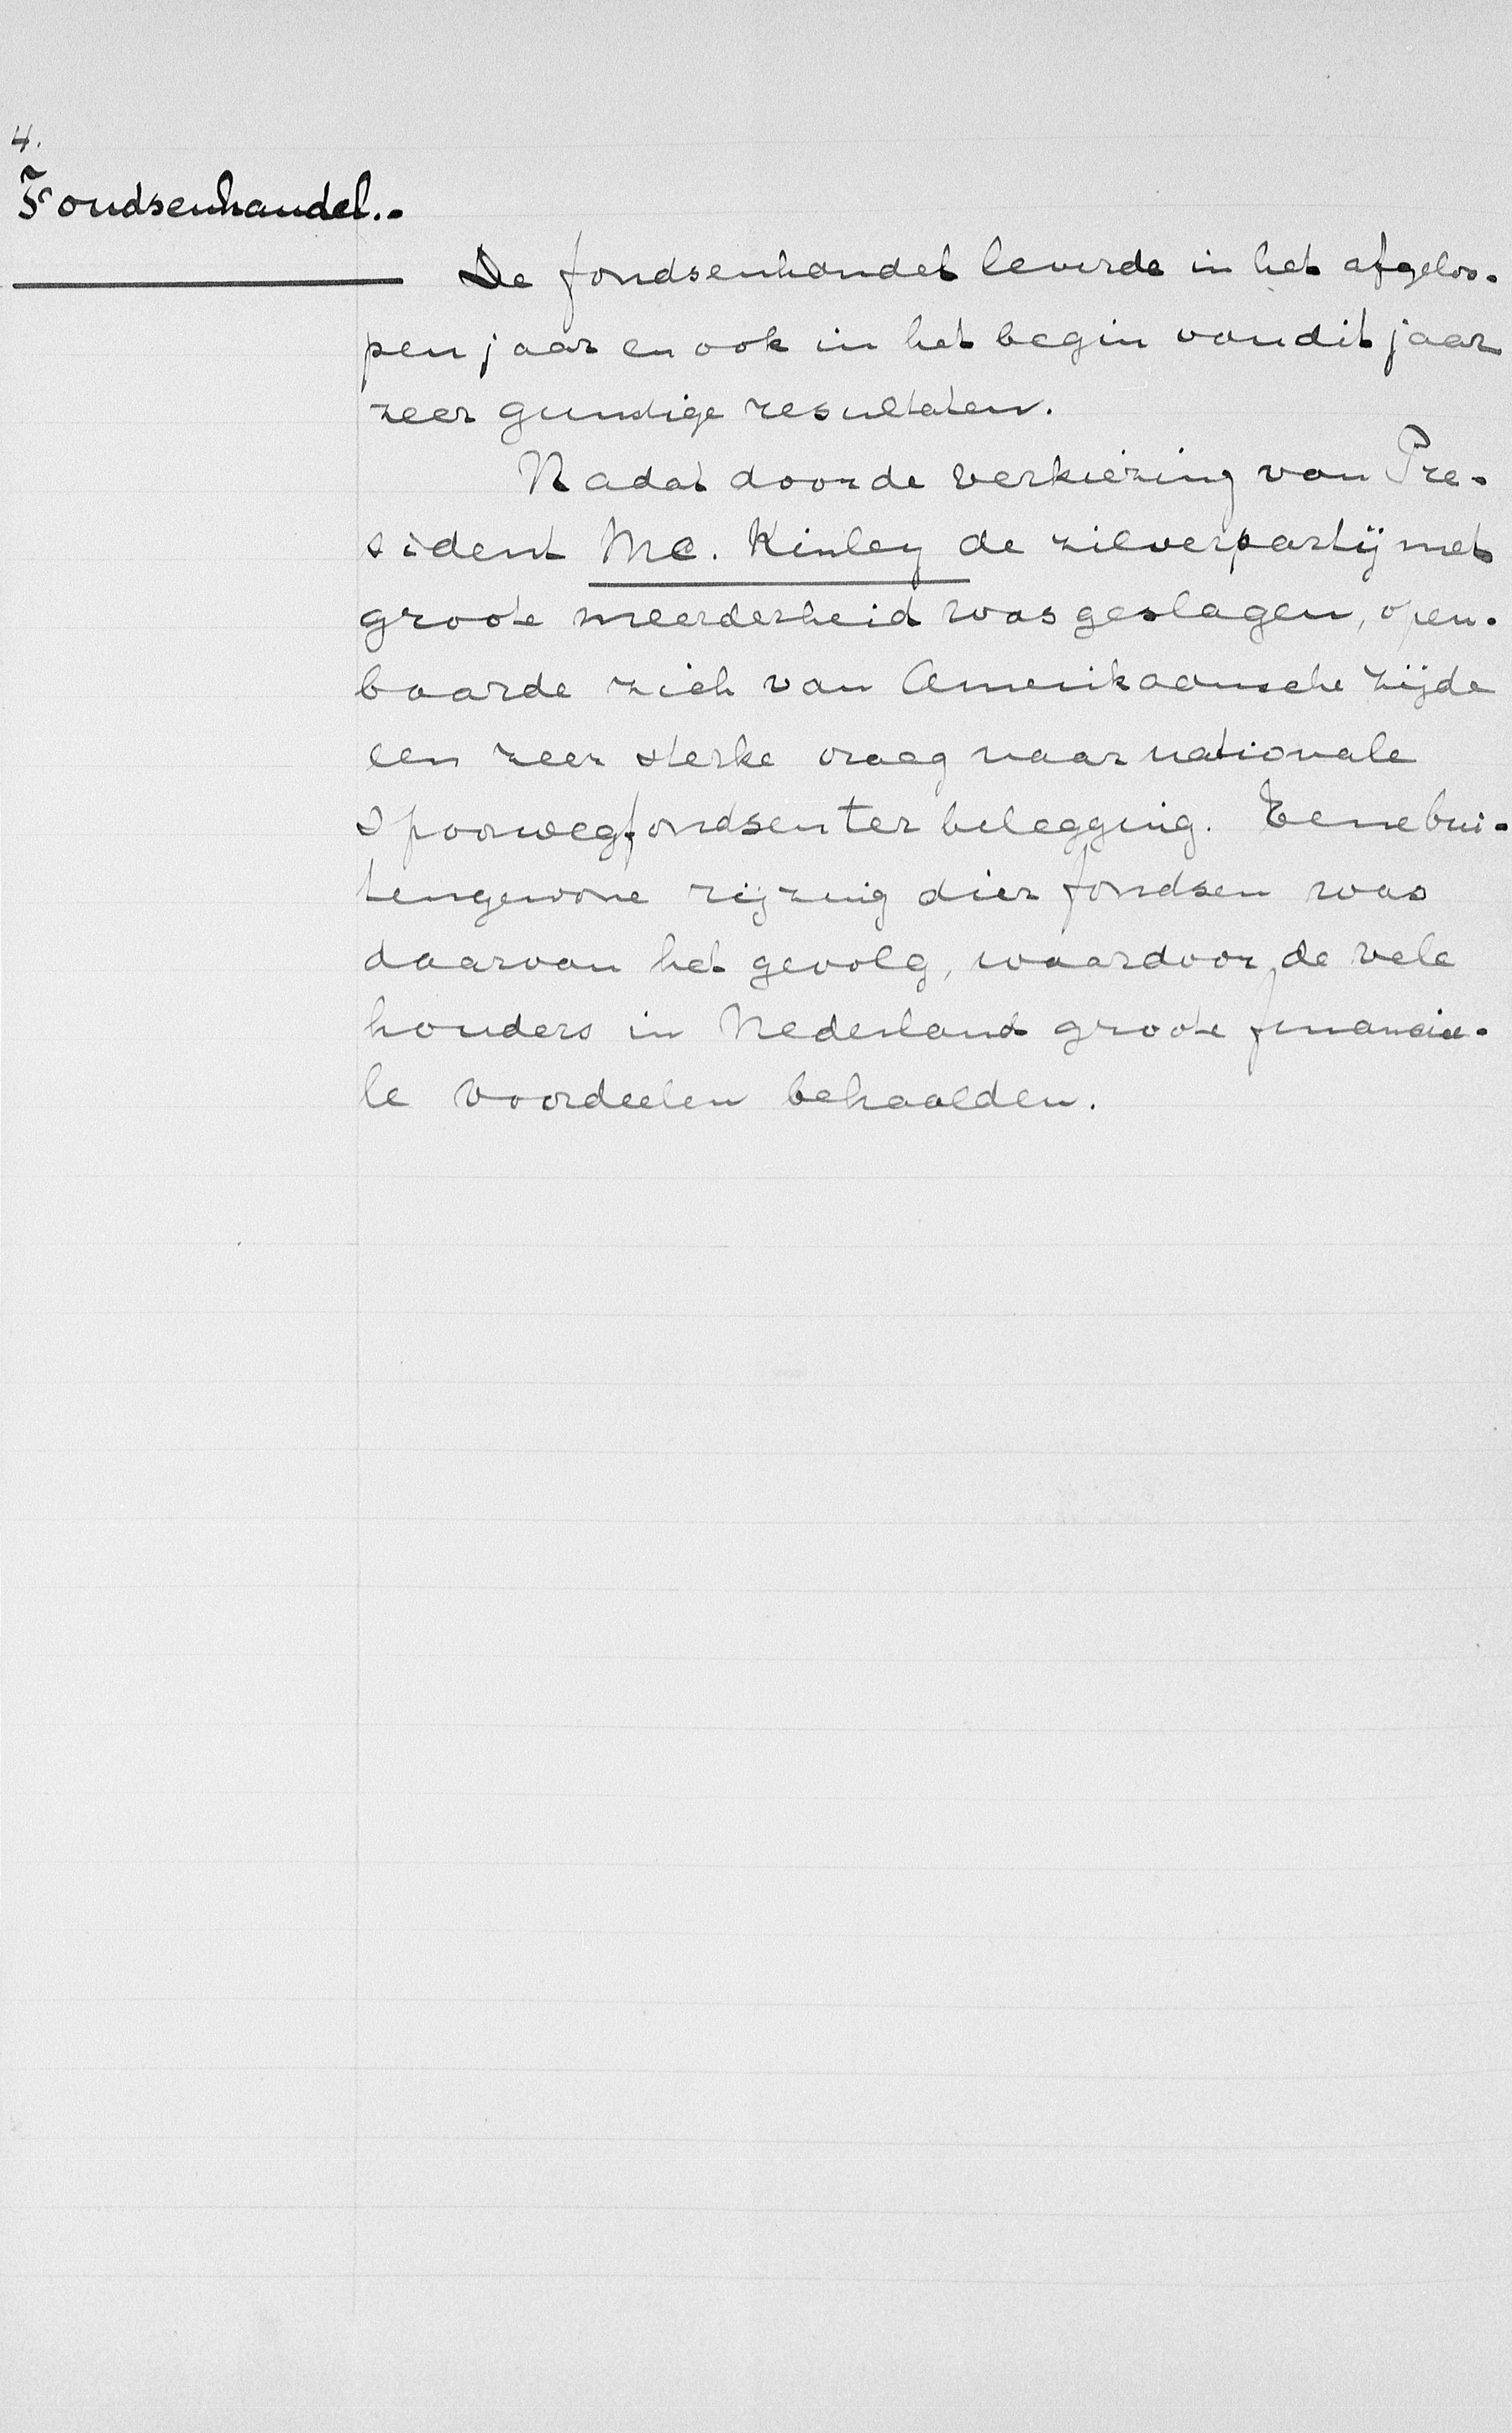 4.
Fondsenhandel..
De fondsenhandel leverde in het afgeloo-
pen jaar en ook in het begin van dit jaar
zeer gunstige resultaten.
Nadat door de verkiezing van Pre-
sident Mc. Kinley de zilverpartij met
groote meerderheid was geslagen, open-
baarde zich van Amerikaansche zijde
een zeer sterke vraag naar nationale
Spoorwegfondsen ter belegging. Eene bui-
tengewone rijzing dier fondsen was
daarvan het gevolg, waardoor de vele
houders in Nederland groote financiee-
le voordeelen behaalden.